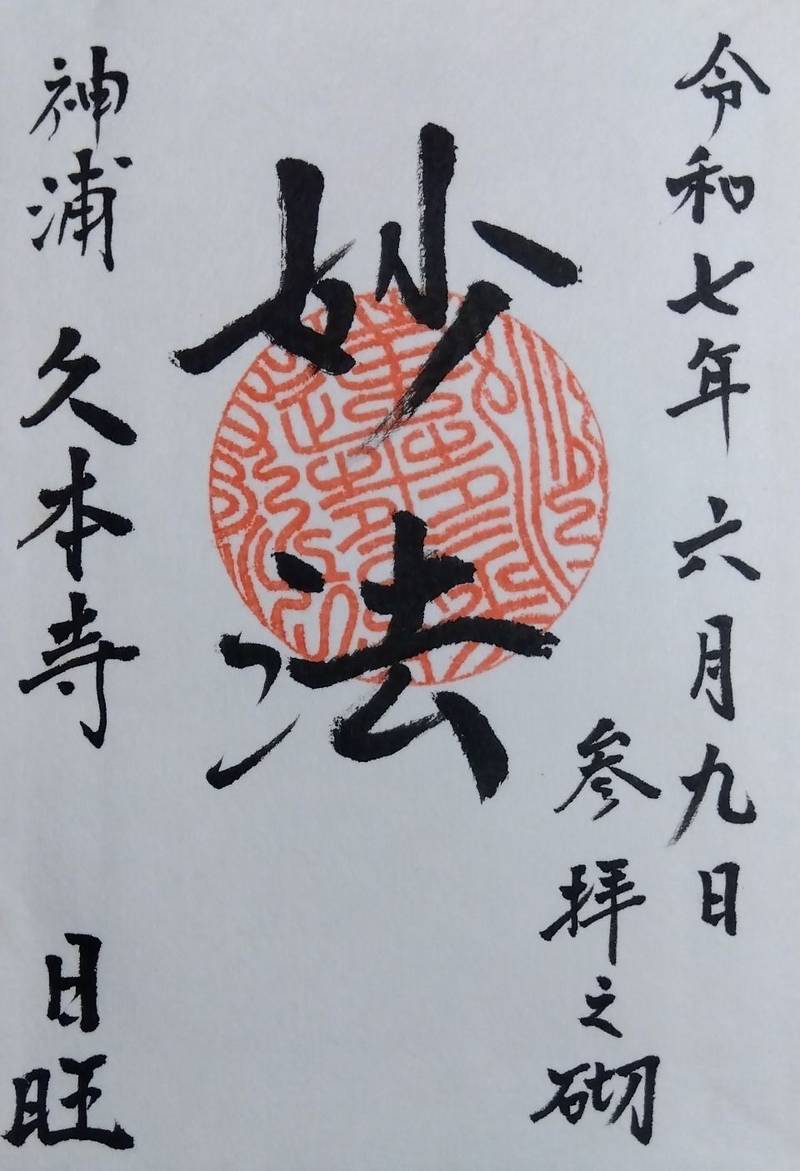 令和七年六月九日
参拝之砌
妙法
神浦 久本寺 日旺